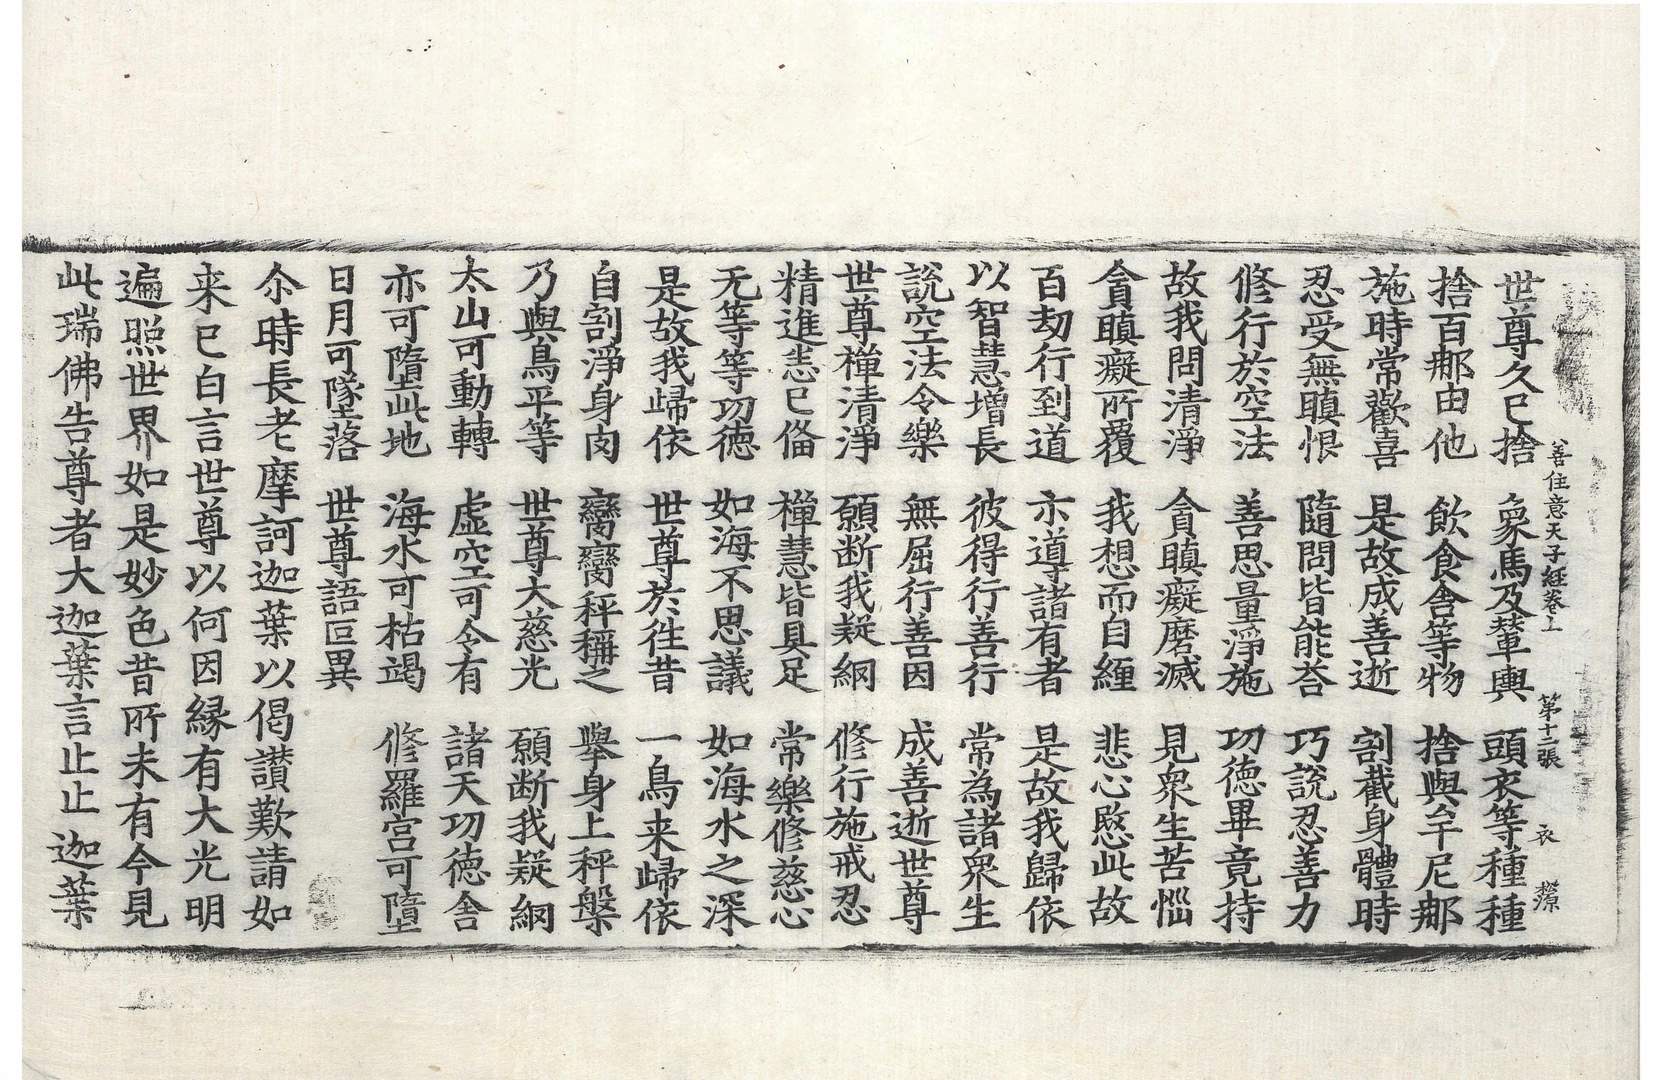 善住意天子經卷上 第十一張 衣
世尊久已捨 象馬及輦輿 頭衣等種種
捨百郍由他 飲食舍等物 捨與牟尼郍
施時常歡喜 是故成善逝 割截身體時
忍受無瞋恨 隨問皆能荅 巧說忍善力
修行於空法 善思量淨施 功德畢竟持
故我問清淨 貪瞋癡磨滅 見衆生苦惱
貪瞋癡所覆 我想而自纏 悲心愍此故
百劫行到道 亦導諸有者 是故我歸依
以智慧增長 彼得行善行 常為諸衆生
說空法令樂 無屈行善因 成善逝世尊
世尊禪清淨 願断我疑網 修行施戒忍
精進恚已俻 禪慧皆具足 常樂修慈心
无等等功德 如海不思議 如海水之深
是故我歸依 世尊於往昔 一鳥来歸依
自割淨身肉 臠臠秤稱之 擧身上秤槃
乃與鳥平等 世尊大慈光 願断我疑網
太山可動轉 虛空可令有 諸天功德舍
亦可隋此地 海水可枯竭 修羅宫可墮
日月可墜落 世尊語叵異
尒時長老摩訶迦葉以偈讃歎請如
来已白言世尊以何因緣有大光明
遍照世界如是妙色昔所未有今見
此瑞佛告尊者大迦葉言止止迦葉